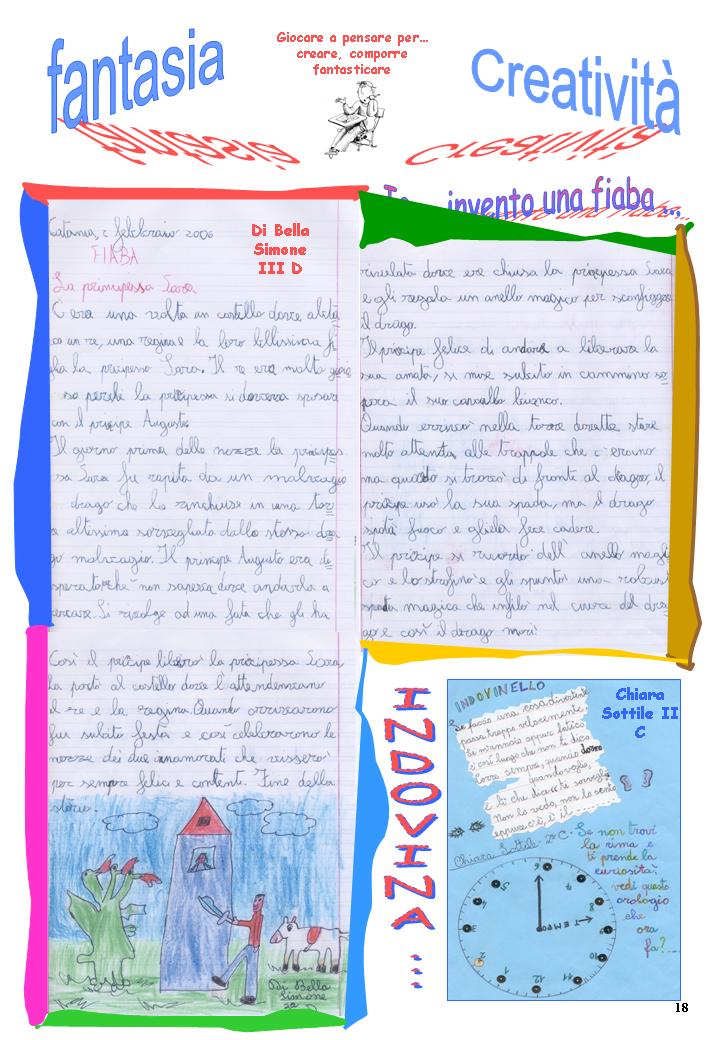 fantasia
Giocare a pensare per…
creare, comporre
fantasticare
Creatività
invento una fiaba ...
Catania, 2 febbraio 2006
FIABA
Di Bella
Simone
III D
La principessa Sara
C'era una volta un castello dove
un re, una regina e la loro bellissima fi
glia la Sara. Il re era molto
so perché la si doveva sposare
con il principe Augusto.
Il giorno prima delle nozze la
sa Sara fu rapita da un malvagio
drago che la rinchiuse in una tor
altissima sorvegliata dallo stesso dra
go malvagio. Il principe Augusto era di
che non sapeva dove andarla a
cercare. Si rivolge ad una fata che gli ha
rivelato dove era chiusa la Sara
e gli regala un anello magico per sconfiggere
il drago.
Il principe felice di andare a liberare la
sua amata, si mise subito in cammino so
pera il suo cavallo bianco.
Quando nella torre dovette stare
molto attento alle trappole che c'erano
ma quando si trovò di fronte al drago, il
usò la sua spada, ma il drago
sputò fuoco e gliela fece cadere.
Il si ricordò dell'anello magi
co e lo strofinò e gli spuntò una
spada magica che infilò nel cuore del dra
go e così il drago morì.
Così il liberò la Sara
la portò al castello dove
il re e la regina. Quando arrivarono
fu subito festa e così celebrarono le
nozze dei due innamorati che vissero
per sempre felici e contenti. Fine della
storia.
Di Bella
Simone
3a
D
INDOVINA ...
INDOVINELLO
Chiara
Sottile II
C
Se faccio una cosa divertente
passa troppo velocemente.
Se m'annoio appare
corre sempre, quando dormo
quando veglio,
Non lo vedo, non lo sento
eppure c'è, è il
Chiara Sottile 2ª C.
Se non trovi
la rima e
ti prende la
curiosità;
vedi questo
orologio
che
ora
fa?...
TEMPO
6
7
8
9
10
11
12
1
2
3
4
5
18